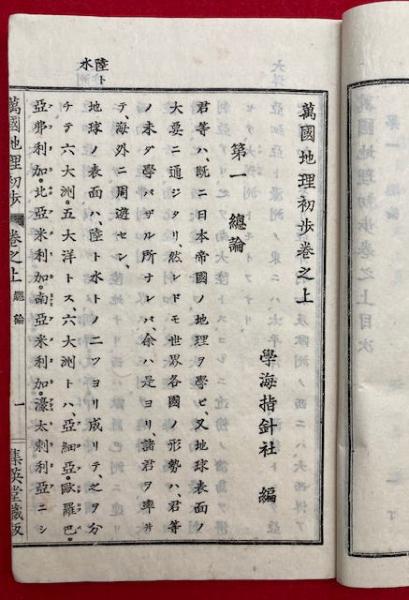 萬國地理初歩卷之上
學海指針社 編
第一 總論
君等ハ、既ニ日本帝國ノ地理ヲ學ビ、又地球表面ノ
大要ニ通ジタリ、然レドモ世界各國ノ形勢ハ、君等
ノ未ダ學バザル所ナレバ、余ハ是ヨリ、諸君ヲ率ヰ
テ、海外ニ周遊セン、
陸ト
水
地球ノ表面ハ、陸ト水トノ二ツヨリ成リテ、之ヲ分
チテ六大洲・五大洋トス、六大洲トハ、亞細亞・歐羅巴・
亞弗利加・北亞米利加・南亞米利加・濠太剌利亞ニシ
萬國地理初歩 卷之上 總論 一 集英堂藏版